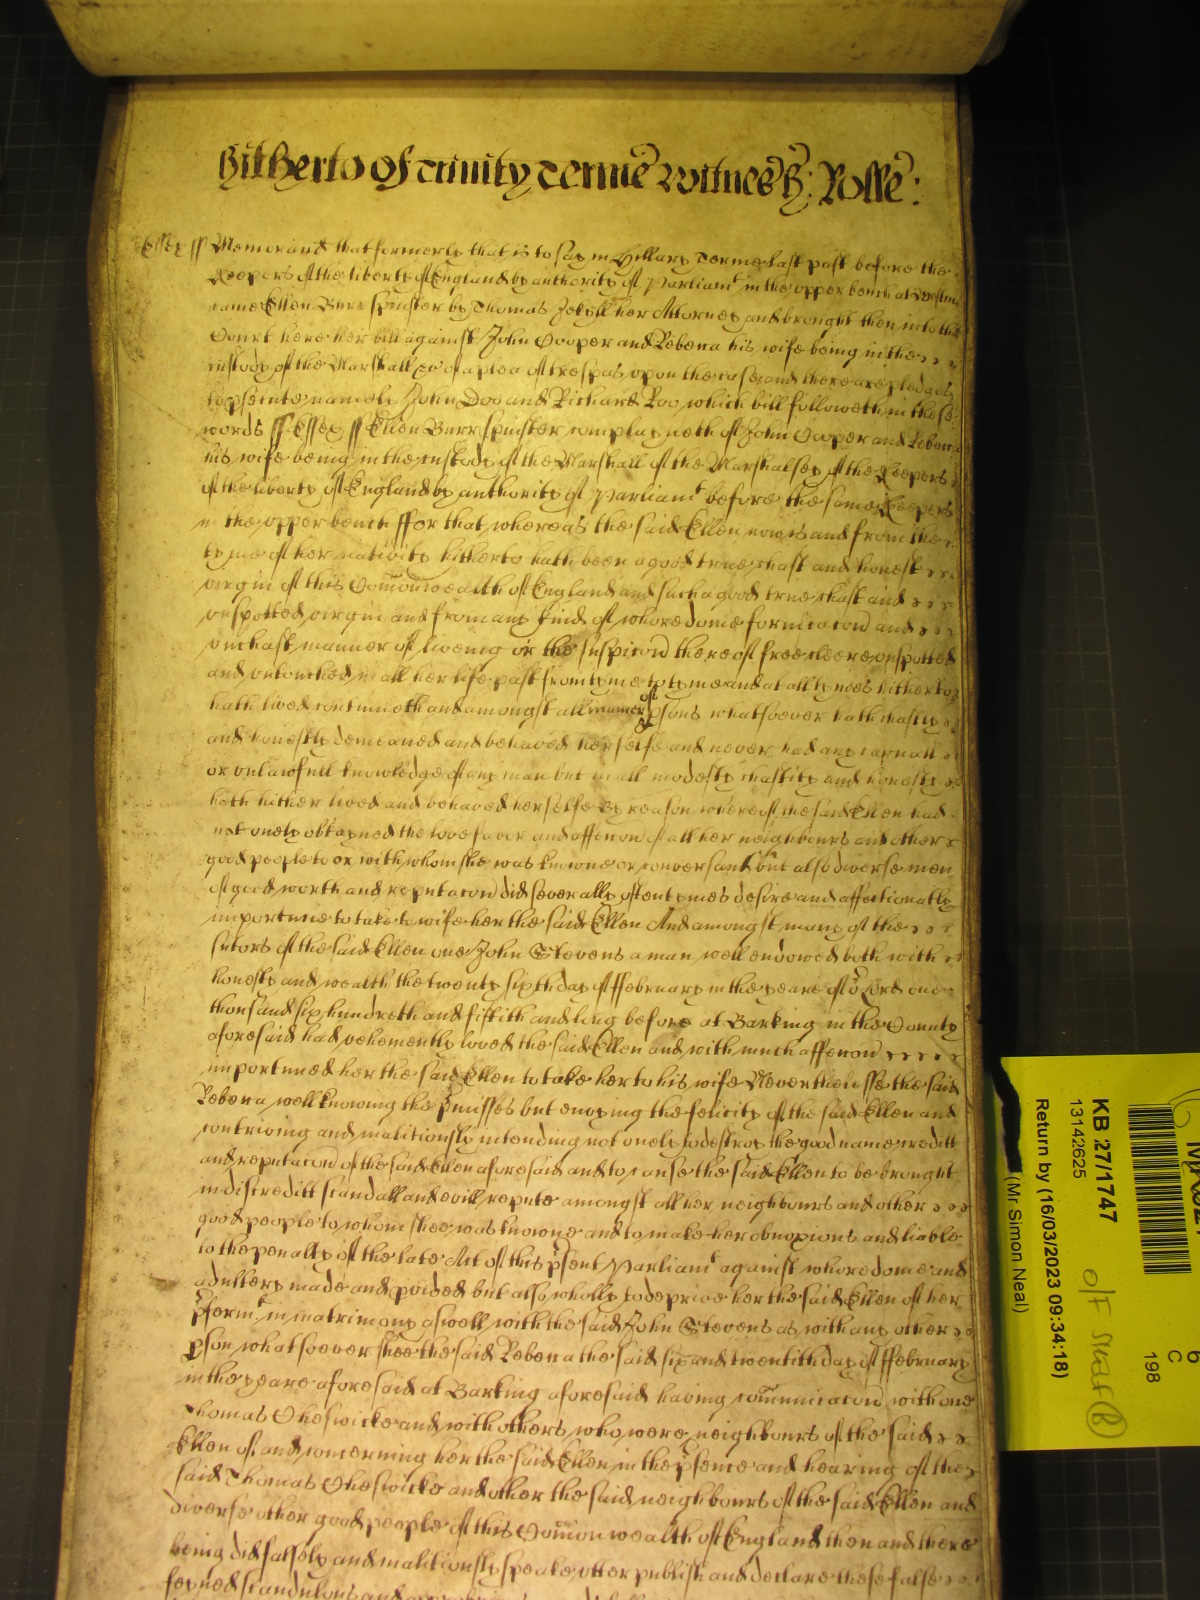 Hitherto of Trinity Terme Witnes H: Rolle:
Essex ss Memorand that formerly that is to say in Hillary Terme last past before the
Keepers of the liberty of England by authority of Parliamt in the upper bench at Westm
came Ellen Burr spinster by Thomas Jekyll her Attorney and brought then into the
Court here her bill against John Cooper and Rebecca his wife being in the
custody of the Marshall &c of a plea of trespas upon the case and there are pledges
to psecute namely John Doo and Richard Roo which bill followeth in these
words ss Essex ss Ellen Burr spinster complayneth of John Cooper and Rebecca
his wife being in the custody of the Marshall of the Marshalsey of the Keepers
of the liberty of England by authority of Parliamt before the same Keepers
in the upper bench ffor that whereas the said Ellen now is and from the
tyme of her nativity hitherto hath been a good true chast and honest
virgin of this Comonwealth of England and such a good true chast and
unspotted virgin and from any kind of whoredome fornicacon and
unchast manner of liveing or the suspicon thereof free cleere unspotted
and untouched in all her life past from tyme to tyme and at all tymes hitherto
hath lived continueth and amongst all manner of psons whatsoever hath chastly
and honestly demeaned and behaved herselfe and never had any carnall
or unlawfull knowledge of any man but in all modesty chastity and honesty
hath hither lived and behaved herselfe By reason whereof the said Ellen had
not onely obtayned the love favor and affeccon of all her neighbours and other
good people to or with whom she was knowne or conversant but also diverse men
of good worth and reputacon did severally oftentymes desire and affectionatly
importune to take to wife her the said Ellen And amongst many of the
sutors of the said Ellen one John Stevens a man well endowed both with
honesty and wealth the twenty sixth day of ffebruary in the yeare of or Lord one
thousand six hundreth and fiftith and long before at Barking in the County
aforesaid had vehemently loved the said Ellen and with much affeccon
importuned her the said Ellen to take her to his wife Neverthelesse the said
Rebecca well knowing the pmisses but envying the felicity of the said Ellen and
contriving and malitiously intending not onely to destroy the good name creditt
and reputacon of the said Ellen aforesaid and to cause the said Ellen to be brought
in discreditt scandall and evill repute amongst all her neighbours and other
good people to whom shee was knowne and to make her obnoxious and liable
to the penalty of the late Act of this psent Parliamt against whoredome and
adultery made and pvided but also wholly to deprive her the said Ellen of her
pfermt in matrimony aswell with the said John Stevens as with any other
pson whatsoever shee the said Rebecca the said six and twentith day of ffebruary
in the yeare aforesaid at Barking aforesaid having comunicacon with one
Thomas Cheswicke and with others who were neighbours of the said
Ellen of and concerning her the said Ellen in the psence and hearing of the
said Thomas Cheswicke and other the said neighbours of the said Ellen and
diverse other good people of this Comonwealth of England then and there
being did falsely and malitiously speake utter publish and declare these false
feyned scandulous and
KB 27/1747
13142625
Return by (16/03/2023 09:34:18)
(Mr Simon Neal)
C
198